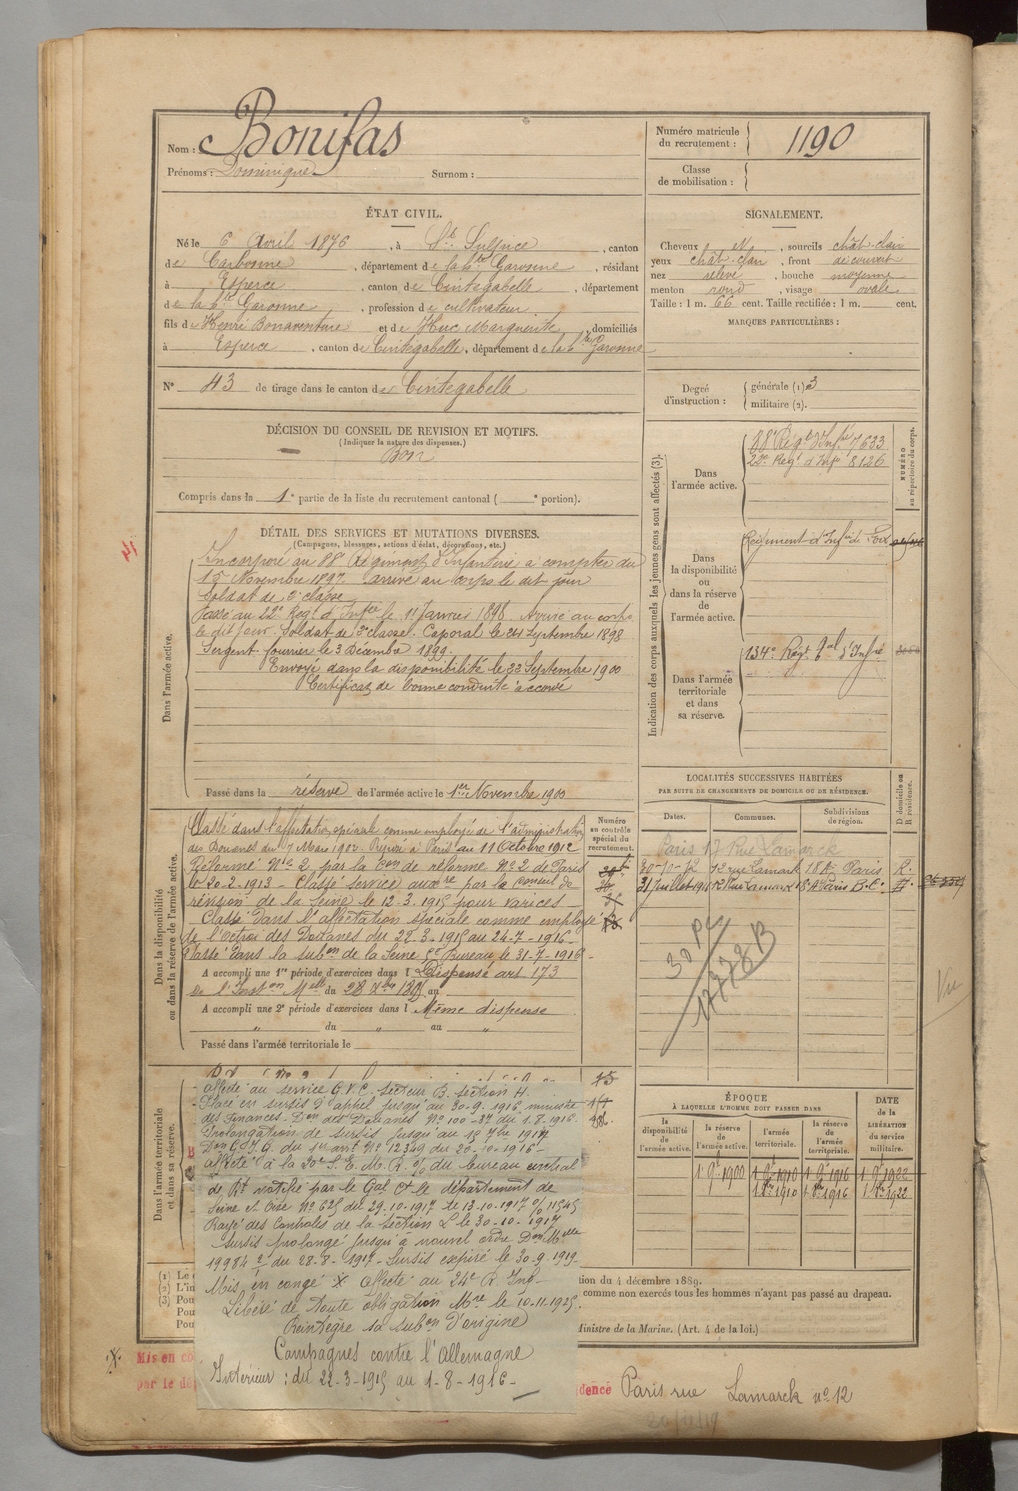 Nom : Bonifas
Prénoms : Dominique Surnom :
Numéro matricule du recrutement : 1190
Classe de mobilisation :
ÉTAT CIVIL.
Né le 6 Avril 1876, à St Sulpice, canton
de Carbonne, département de la hte Garonne, résidant
à Esperce, canton de Cintegabelle, département
de la hte Garonne, profession de cultivateur
fils de Henri Bonaventure et de Huc Marguerite, domiciliés
à Esperce, canton de Cintegabelle, département de la hte Garonne
N° 43 de tirage dans le canton de Cintegabelle
SIGNALEMENT.
Cheveux et, sourcils chât-clair
yeux chât-clair, front découvert
nez relevé, bouche moyenne
menton rond, visage ovale
Taille : 1 m. 66 cent. Taille rectifiée : 1 m. cent.
MARQUES PARTICULIÈRES :
Degré d'instruction : générale (1) 3
militaire (2).
DÉCISION DU CONSEIL DE REVISION ET MOTIFS.
(Indiquer la nature des dispenses.)
Bon
Compris dans la 1e partie de la liste du recrutement cantonal ( e portion).
Indication des corps auxquels les jeunes gens sont affectés (3).
NUMÉRO au répertoire du corps.
Dans l'armée active.
88e Regt d'Infie 7633
22e Regt d'Infie 8126
Dans la disponibilité ou dans la réserve de l'armée active.
Régiment d'Infie de
Dans l'armée territoriale et dans sa réserve.
134e Regt tal d'Infie
DÉTAIL DES SERVICES ET MUTATIONS DIVERSES.
(Campagnes, blessures, actions d'éclat, décorations, etc.)
Dans l'armée active.
Incorporé au 88e Régiment d'Infanterie à compter du
15 Novembre 1897. Arrivé au corps le dit jour
Soldat de 2e classe
Passé au 22e Regt d'Infie le 11 Janvier 1898 Arrivé au corps
le dit jour. Soldat de 2e classe. Caporal le 24 Septembre 1898
Sergent fourrier le 3 Décembre 1899.
Envoyé dans la disponibilité le 22 Septembre 1900
Certificat de bonne conduite accordé
Passé dans la réserve de l'armée active le 1er Novembre 1900
LOCALITÉS SUCCESSIVES HABITÉES
PAR SUITE DE CHANGEMENTS DE DOMICILE OU DE RÉSIDENCE.
Dates. Communes. Subdivisions de région. D domicile ou R résidence.
Paris 17 Rue Lamarck
30-10-12 12 rue Lamark 18e Paris R.
31 Juillet 1916 12 Rue Lamarck 18e Paris B.C.
30 P
17778 B
Vu
Dans la disponibilité ou dans la réserve de l'armée active.
Numéro au contrôle spécial du recrutement.
Classé dans l'affectation spéciale comme employé de l'administration
des Douanes du 7 Mars 1902. Réparé à Paris au 11 Octobre 1912
Réformé No 2 par la Con de réforme No 2 de Paris
le 20-2-1913 – Classé service auxre par la Conseil de
révision de la Seine le 12-3-1915 pour varices –
Classé dans l'affectation spéciale comme employé
de l'octroi des Douanes du 22-3-1915 au 24-7-1916 –
Passé dans la subon de la Seine Bureau le 31-7-1916 –
A accompli une 1re période d'exercices dans l Dispensé art 173
de l'Inston Melle du 28 Xbre au
A accompli une 2e période d'exercices dans l Même dispense
„ du „ au „
Passé dans l'armée territoriale le
Dans l'armée territoriale et dans sa réserve.
affecté au service G.V.C. Secteur B. section H.
Placé en sursis d'appel jusqu'au 30-9-1916 ministre
des Finances. Don des Douanes No 100-32 du 1-8-1916.
Prolongation de sursis jusqu'au 15 7bre 1917
Don G.T.G. du No 12349 du 20-10-1916 –
affecté à la 20e S.E.M.R. du bureau central
de Rt rattaché par le Gal Ct le département de
Seine et Oise No 625 du 29-10-1917 le 13-10-1917 11545
Rayé des Contrôles de la section le 30-10-1917
Sursis prolongé jusqu'à nouvel ordre Don Melle
19984 2 du 28-8-1917 – Sursis expiré le 30-9-1919.
Mis en congé X Affecté au 24e R. Inf –
Libéré de toute obligation Mre le 10-11-1925.
Réintègre sa subon d'origine
Campagnes contre l'Allemagne
Intérieur : du 22-3-1915 au 1-8-1916 –
ÉPOQUE
À LAQUELLE L'HOMME DOIT PASSER DANS
la disponibilité de l'armée active. la réserve de l'armée active. l'armée territoriale. la réserve de l'armée territoriale.
DATE de la LIBÉRATION du service militaire.
1 9bre 1900 1 8bre 1910 1 8bre 1916 1 8bre 1922
1 9bre 1910 1 9bre 1916 1 9bre 1922
(1) Le
(2) L'in
(3) Pou
Pou
Pou
tion du 4 décembre 1889.
comme non exercés tous les hommes n'ayant pas passé au drapeau.
Ministre de la Marine. (Art. 4 de la loi.)
X. Mis en co
par le dé
dence Paris rue Lamarck no 12